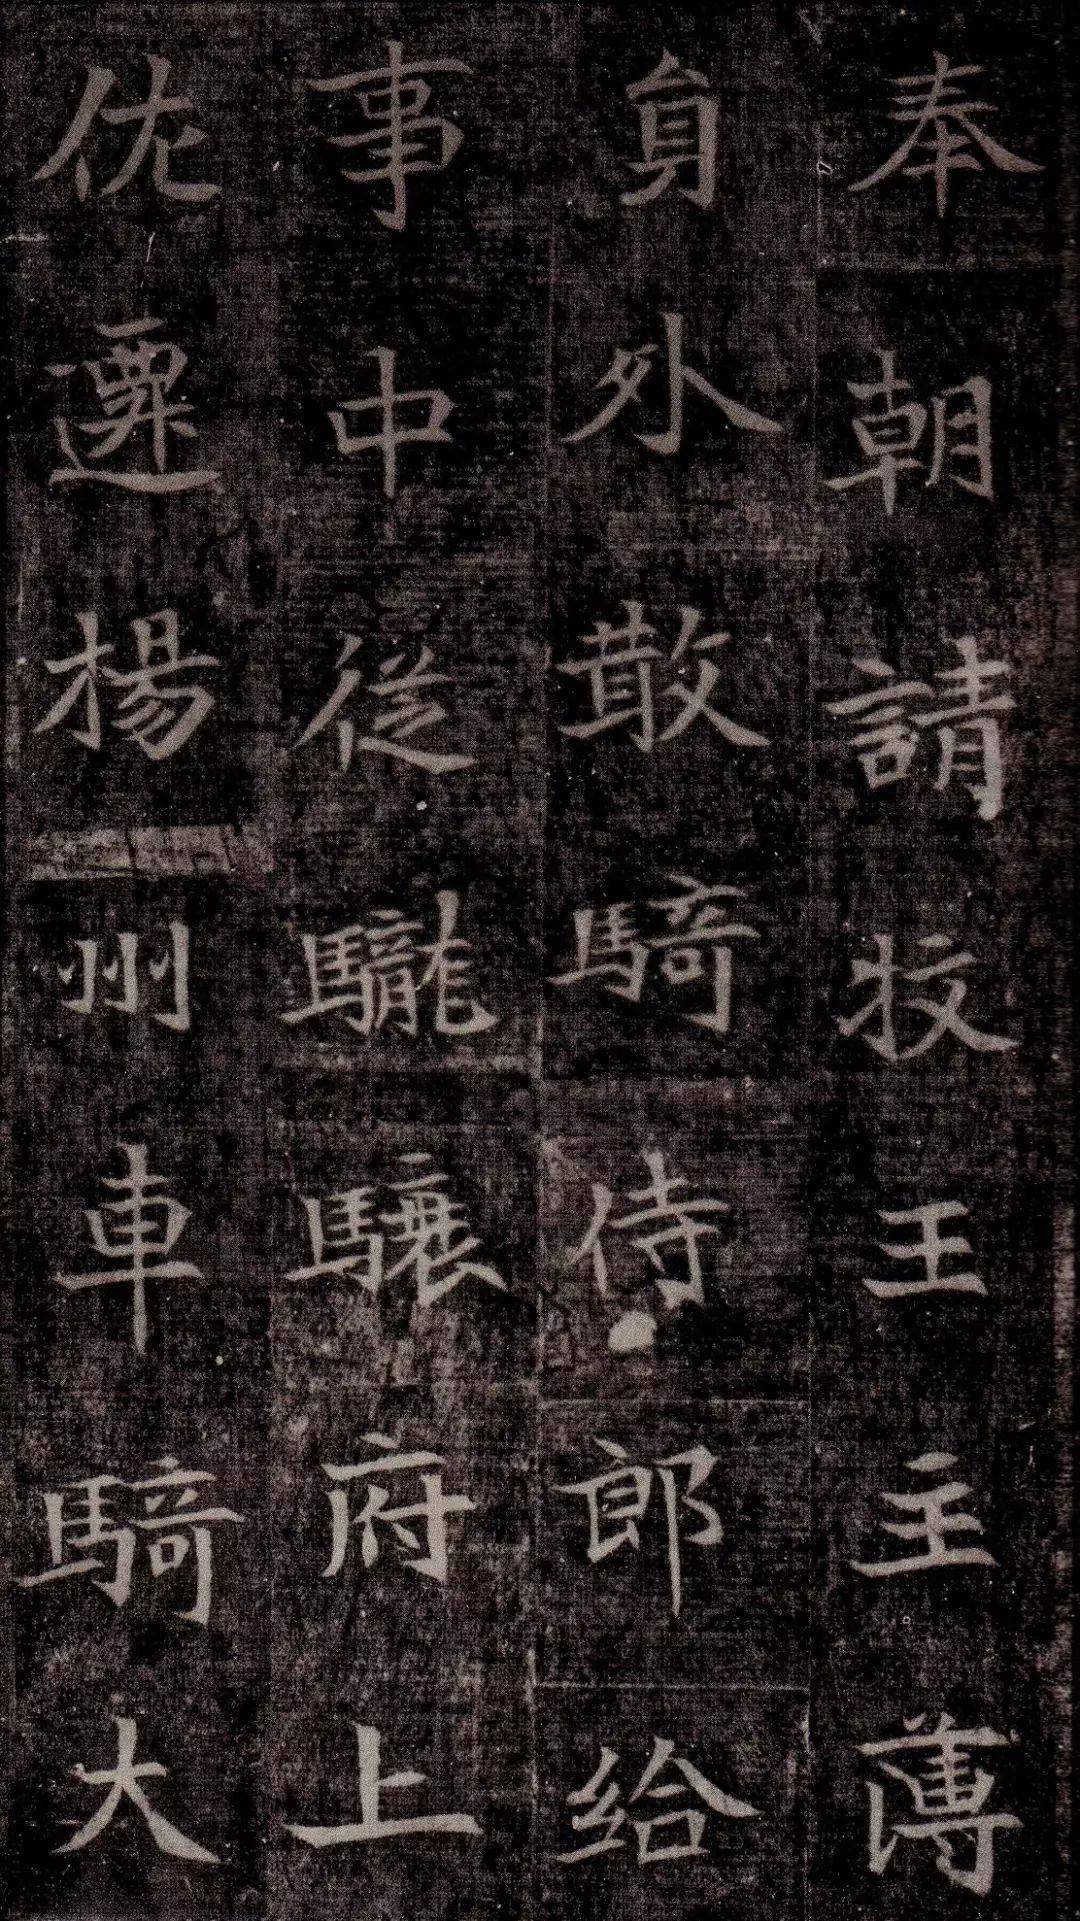 奉朝請挍王主薄
員外散騎侍郎給
事中從驣驤府上
佐遷揚州車騎大